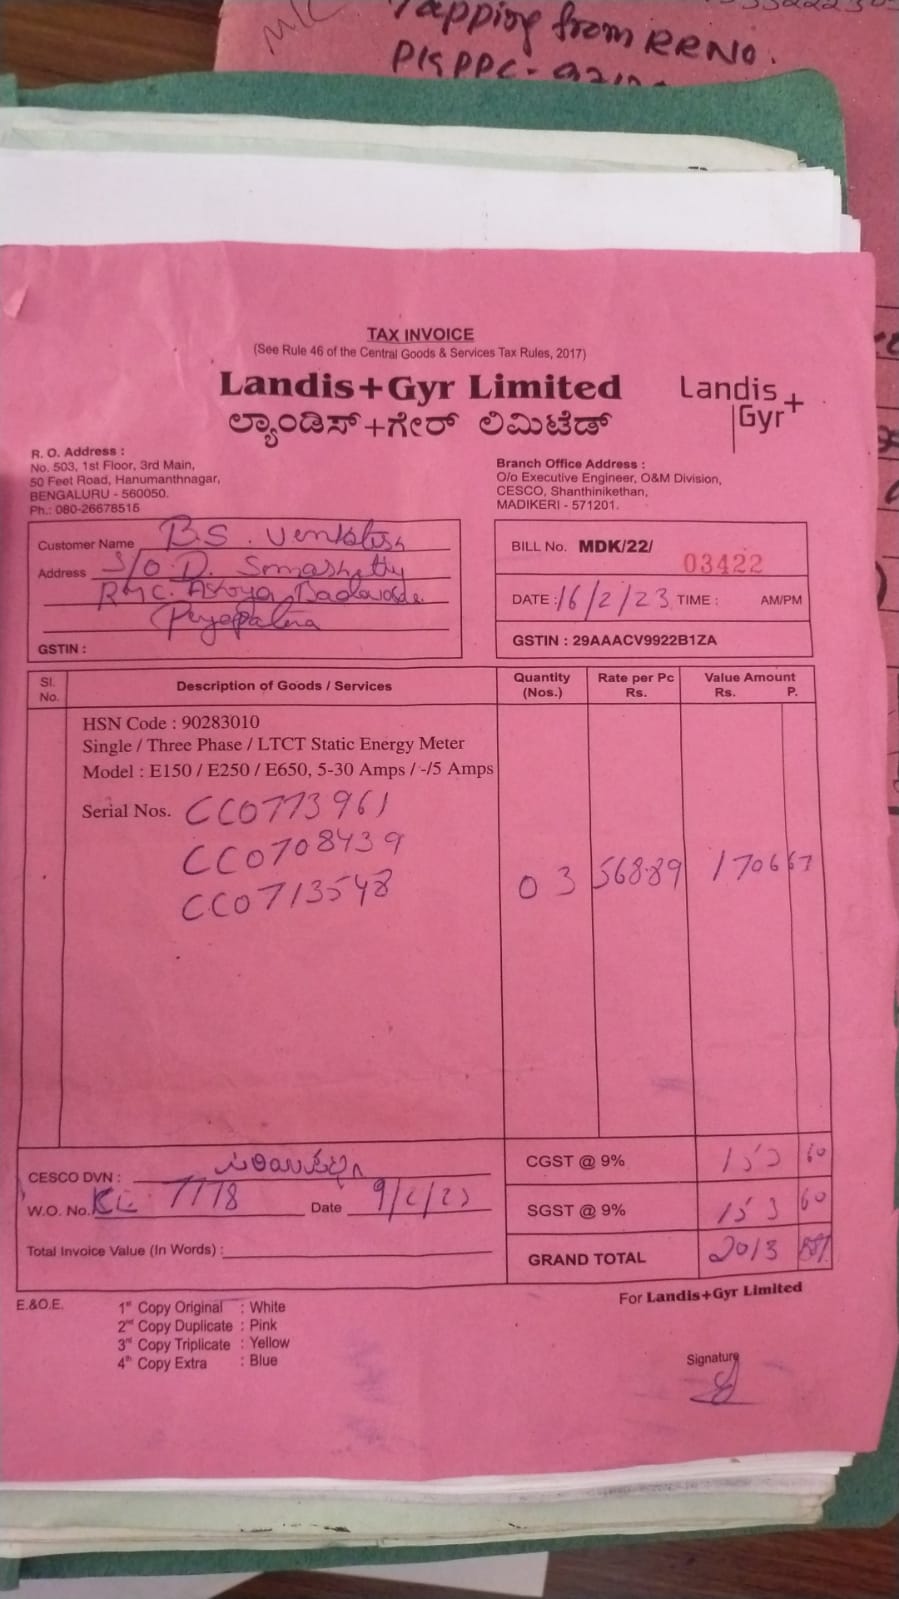 Tapping from RRNO.
TAX INVOICE
(See Rule 46 of the Central Goods & Services Tax Rules, 2017)
Landis+Gyr Limited
ಲ್ಯಾಂಡಿಸ್+ಗೇರ್ ಲಿಮಿಟೆಡ್
Landis+
Gyr
R. O. Address :
No. 503, 1st Floor, 3rd Main,
50 Feet Road, Hanumanthnagar,
BENGALURU - 560050.
Ph.: 080-26678515
Branch Office Address :
O/o Executive Engineer, O&M Division,
CESCO, Shanthinikethan,
MADIKERI - 571201.
Customer Name B.S. Venktesh
Address S/O D.
GSTIN :
BILL No. MDK/22/ 03422
DATE : 16/2/23 TIME : AM/PM
GSTIN : 29AAACV9922B1ZA
Sl. No. Description of Goods / Services Quantity (Nos.) Rate per Pc Rs. Value Amount Rs. P.
HSN Code : 90283010
Single / Three Phase / LTCT Static Energy Meter
Model : E150 / E250 / E650, 5-30 Amps / -/5 Amps
Serial Nos. CC0773961
CC0708439
CC0713548
03 568.89 1706 67
CESCO DVN :
CGST @ 9% 153 60
W.O. No. 7178 Date 9/2/23
SGST @ 9% 153 60
Total Invoice Value (In Words) :
GRAND TOTAL 2013
E.&O.E.
1st Copy Original : White
2nd Copy Duplicate : Pink
3rd Copy Triplicate : Yellow
4th Copy Extra : Blue
For Landis+Gyr Limited
Signature